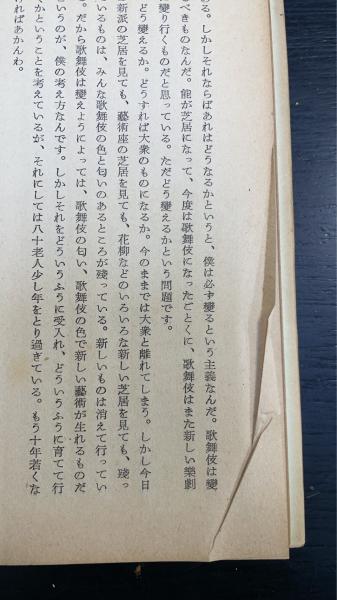 る。しかしそれならばあれはどうなるかというと、僕は必ず變るという主義なんだ。歌舞伎は變
べきものなんだ。能が芝居になって、今度は歌舞伎になったごとくに、歌舞伎はまた新しい樂劇
に變り行くものだと思っている。ただどう變るかという問題です。
どう變えるか。どうすれば大衆のものになるか。今のままでは大衆と離れてしまう。しかし今日
新派の芝居を見ても、藝術座の芝居を見ても、花柳などのいろいろな新しい芝居を見ても、殘っ
ているものは、みんな歌舞伎の色と匂いのあるところが殘っている。新しいものは消えて行ってい
る。だから歌舞伎は變えようによっては、歌舞伎の匂い、歌舞伎の色で新しい藝術が生れるものだ
というのが、僕の考え方なんです。しかしそれをどういうふうに受入れ、どういうふうに育てて行
かということを考えているが、それにしては八十老人少し年をとり過ぎている。もう十年若くな
ければあかんわ。